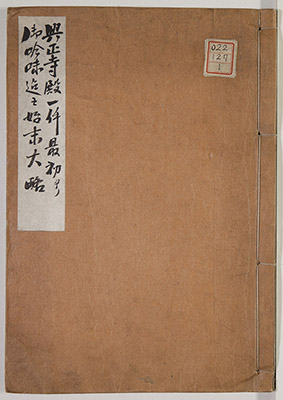 興正寺殿一件最初ゟ
御吟味迄之始末大略
022
127
1